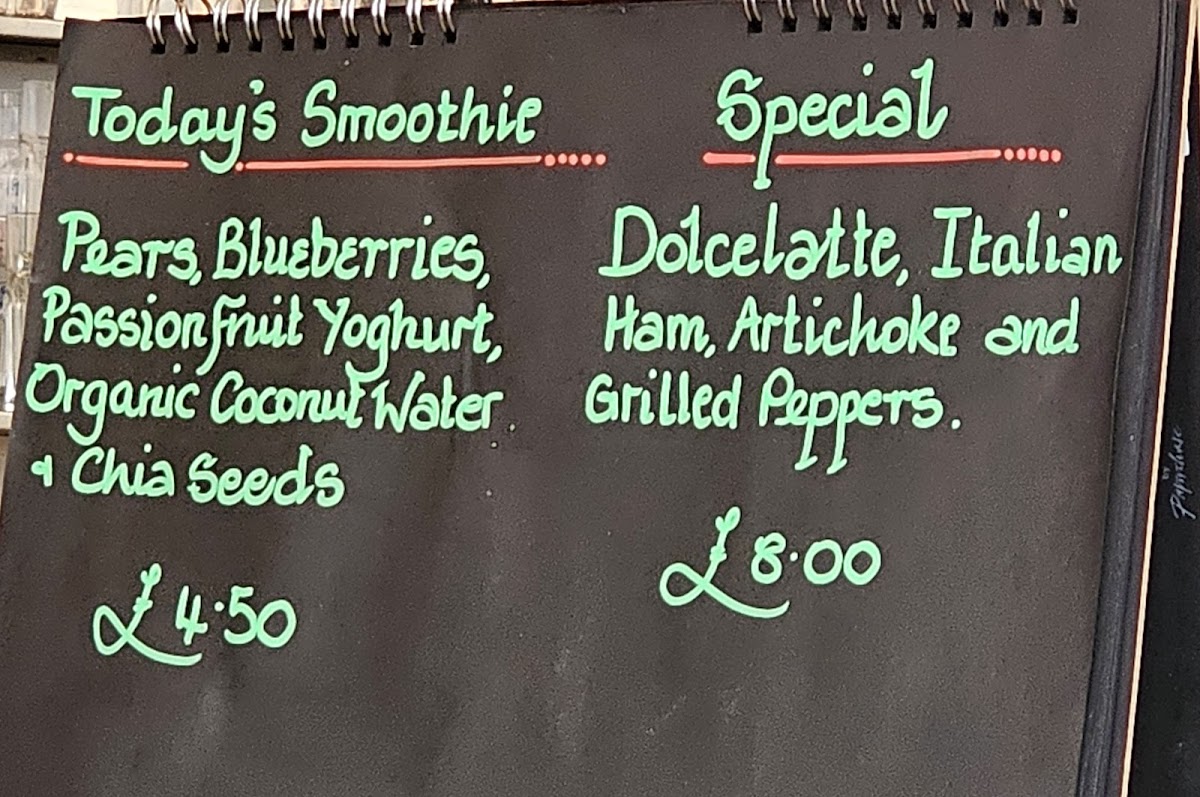 Today's Smoothie
Pears, Blueberries,
Passionfruit Yoghurt,
Organic Coconut Water
& Chia Seeds
£4.50
Special
Dolcelatte, Italian
Ham, Artichoke and
Grilled Peppers.
£8.00
BY